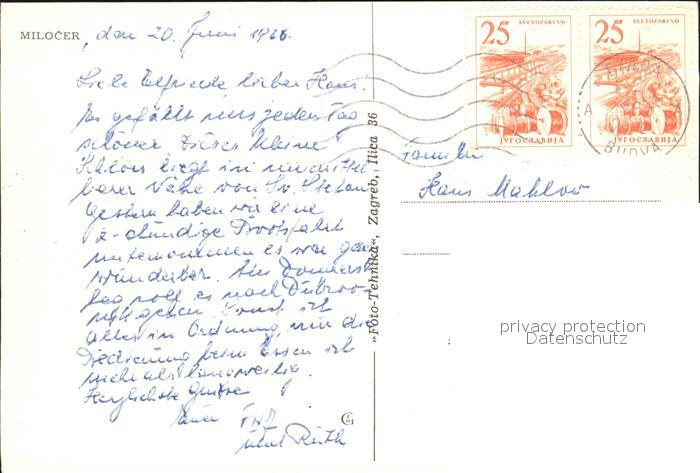 MILOČER, den 20. Juni 1966.
Liebe Elfriede, lieber Hans.
Es gefällt uns jeden Tag
schöner. Dieses kleine
Schloss liegt in unmittel
barer Nähe von Sv. Stefan.
Gestern haben wir eine
2-stündige Bootsfahrt
unternommen es war ganz
wunderbar. Am Donners
tag soll es nach Dubrov-
nik gehen. Sonst ist
alles in Ordnung, nur die
Bedienung beim Essen ist
mehr als langweilig.
Herzlichste Grüsse
Eure
und Ruth
»Foto-Tehnika«, Zagreb, Ilica 36
25
SVETOZAREVO
JUGOSLAVIJA
25
SVETOZAREVO
JUGOSLAVIJA
A
BUDVA
Familie
Hans Mahlow
privacy protection
Datenschutz